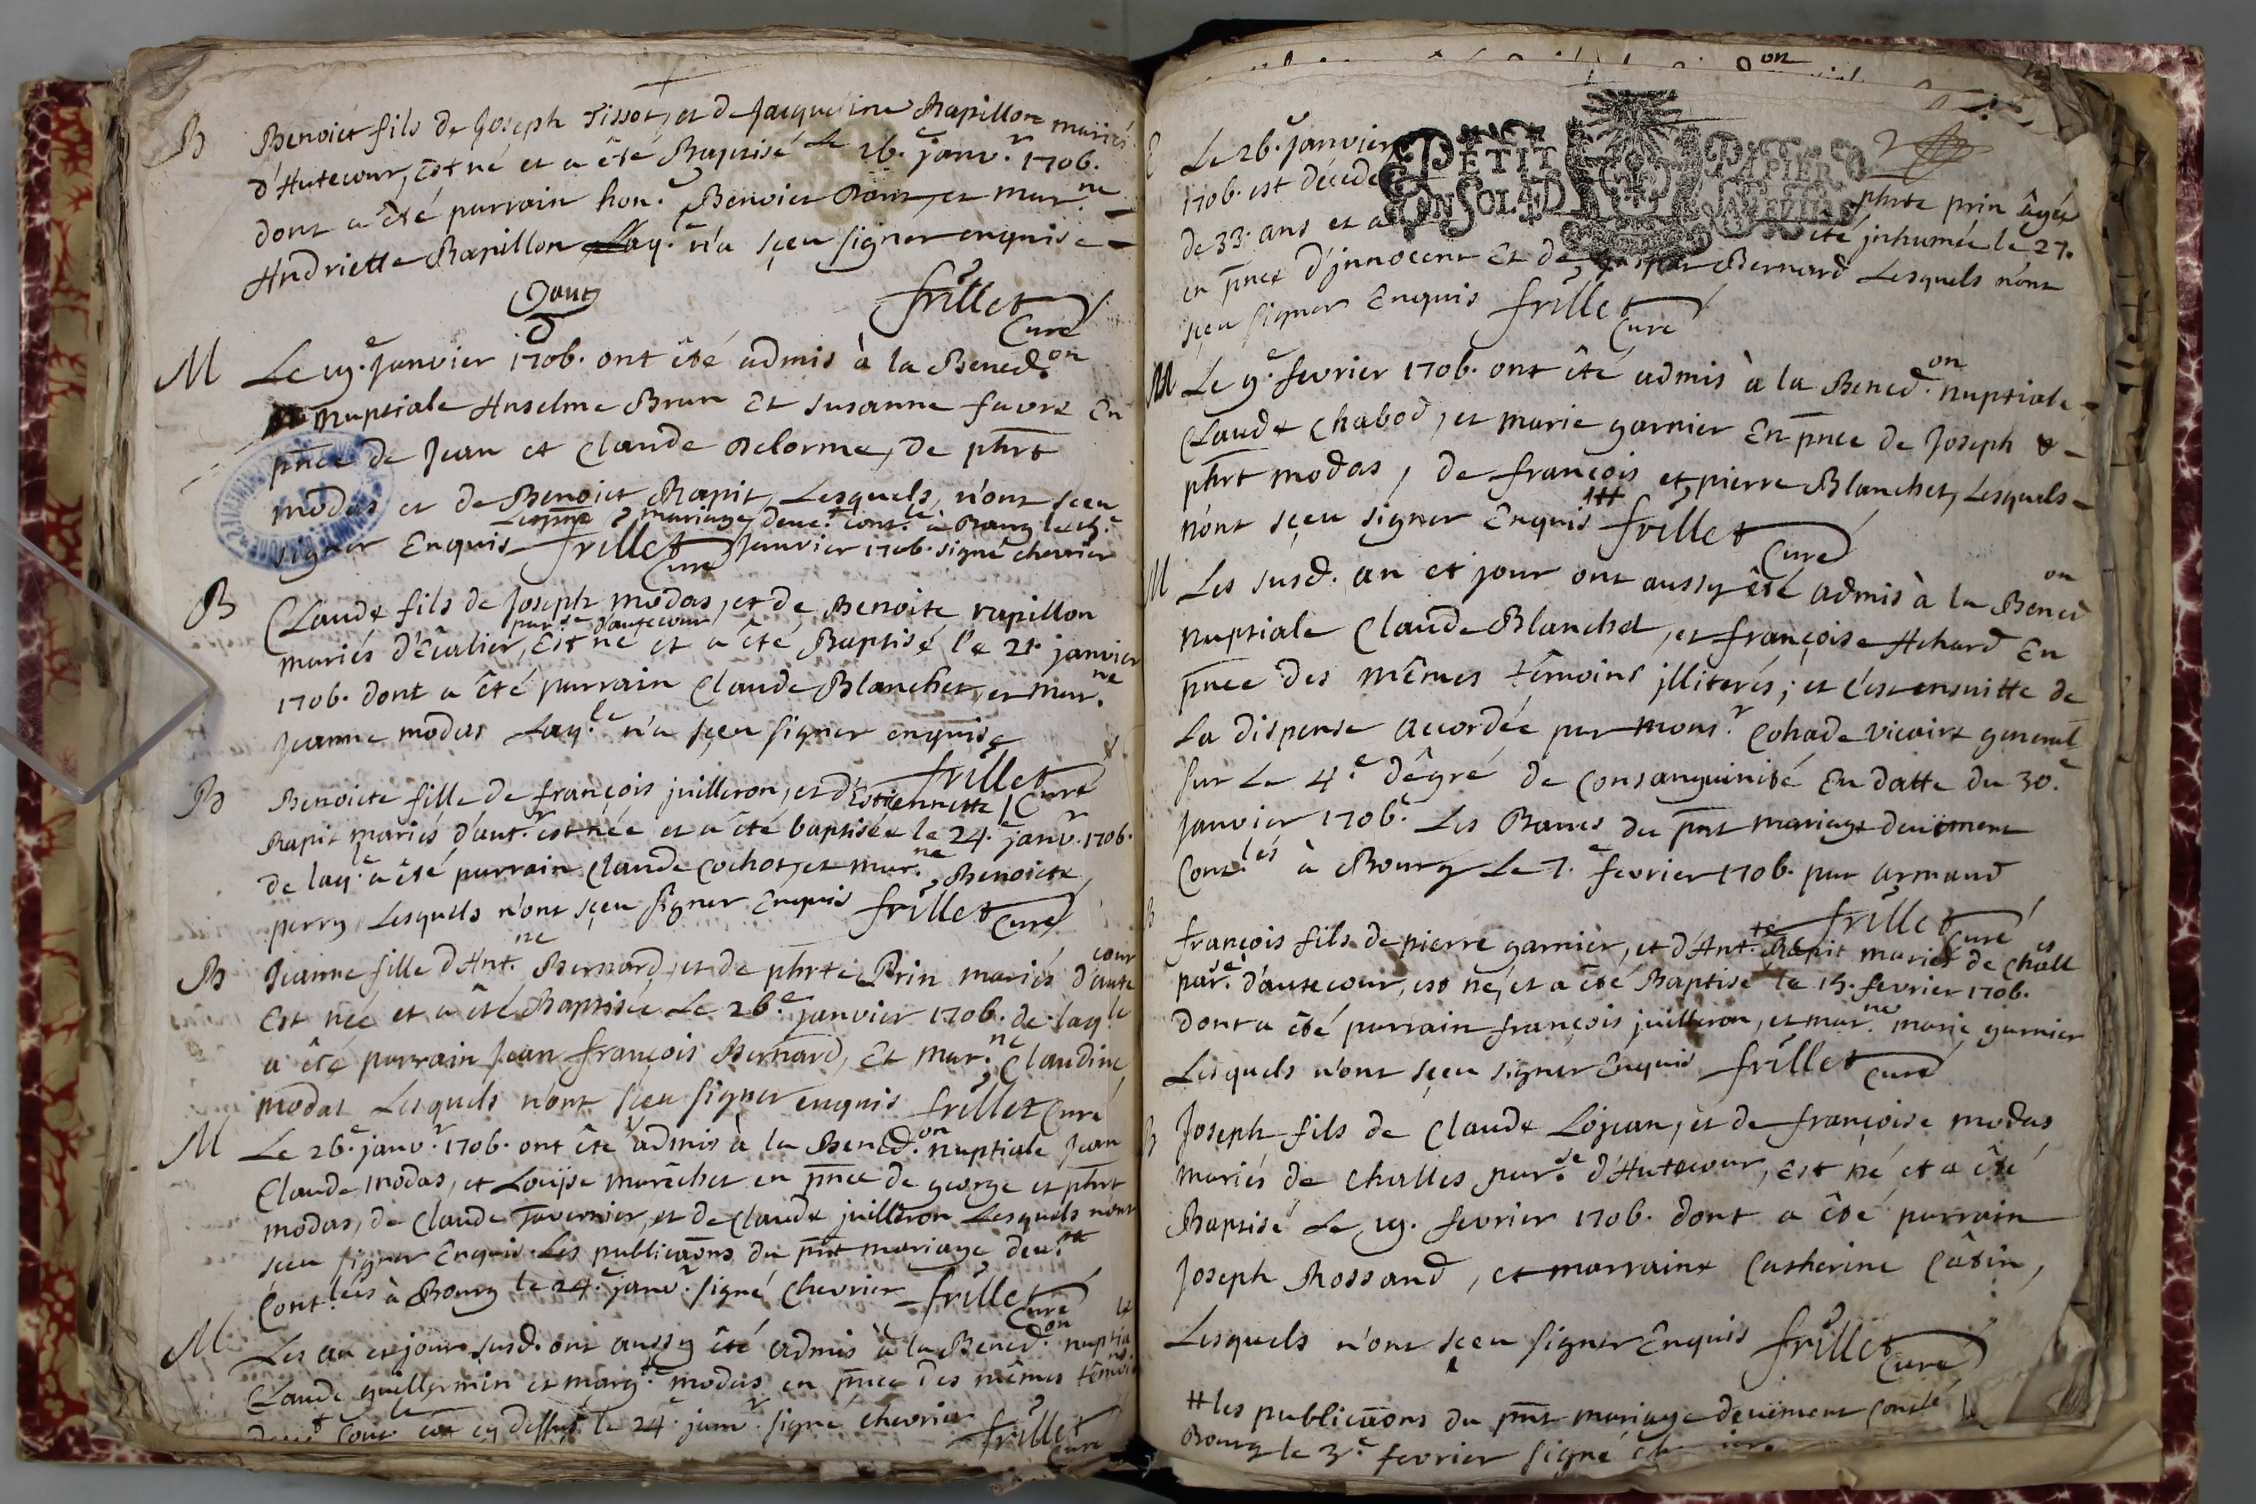 B Benoict fils de Joseph Tissot, et de Jacqueline Rapillon mariés
d'Hutecour, Est né et a êté Baptisé Le 16.e janv.r 1706.
dont a êté parrain hon.e Benoict Dour, et mar.ne
Andriette Rapillon Laq.le n'a sçeu signer enquise
Frillet
Curé
M Le 19.e Janvier 1706. ont êté admis à la Bened.on
nuptiale Anselme Brun Et Susanne favre En
pnce de Jean et Claude Delorme, de phrt
modas et de Benoict Rapit, Lesquels n'ont sceu
mariage deue.t Cont.lé à Bourg le 15.e
signer Enquis Frillet Janvier 1706. signé chevrier
Curé
B Claude fils de Joseph modas, et de Benoite rapillon
par.se d'autecour
mariés d'Evalier, Est né et a êté Baptisé le 21. janvier
1706. dont a êté parrain Claude Blanchet, et mar.ne
Jeanne modas Laq.le n'a sçeu signer enquise
Frillet
Curé
B Benoicte fille de françois juilleron, et d'Estiennette
Rapit mariés d'aut.r est née et a êté baptisée le 24.e janv.r 1706.
de laq.le a êté parrain Claude Cochot, et mar.ne Benoicte
perry Lesquels n'ont sçeu signer Enquis Frillet Curé
B Jeanne fille d'Ant.ne Bernard, et de phrte Prin mariés d'autecour
Est née et a êté Baptisée Le 26.e janvier 1706. de laq.le
a êté parrain Jean françois Bernard, Et mar.ne Claudine
modas Lesquels n'ont sçeu signer enquis Frillet Curé
M Le 26.e janv.r 1706. ont êté admis à la Bened.on nuptiale Jean
Claude modas, et Louïse marêchet en pnce de george et phrt
modas, de Claude Tavernier, et de Claude juilleron Lesquels n'ont
sceu signer Enquis. Les publicaons du pnt mariage deu.nt
Cont.léés à Bourg le 24.e janv.r signé Chevrier Frillet
Curé
M Les an et jour susd. ont aussy êté admis à la Bened.on nuptia le
Claude guillermin et marg.te modas en pnce des mêmes têmoins
Cont lé cy dessus le 24.e janv.r signé chevrier Frillet
Curé
PETIT PAPIER
Le 26.e janvier
1706. est décédé phrte prin âgée
de 33. ans et a été jnhumée le 27.
en pnce d'jnnocent Et de Bernard Lesquels n'ont
sçeu signer Enquis Frillet
Curé
M Le 9.e fevrier 1706. ont êté admis à la Bened.on nuptiale
Claude Chabod, et marie garnier En pnce de Joseph &
phrt modas, de françois et pierre Blanchet, Lesquels
n'ont sçeu signer Enquis # Frillet
Curé
M Les susd. an et jour ont aussy êté admis à la Bened.on
nuptiale Claude Blanchet, et françoise Achard En
pnce des mêmes têmoins jlliterés; et c'est ensuitte de
La dispense accordée par mons.r Cohade vicaire general
sur Le 4.e dêgré de Consanguinité En datte du 30.e
janvier 1706. Les Bancs du pnt mariage deuëment
Cont.lés à Bourg Le 7.e fevrier 1706. par armand
Frillet
Curé
B françois fils de pierre garnier, et d'Ant.te Rapit mariés de Chall es
par.se d'autecour, est né, et a êté Baptisé le 15. fevrier 1706.
dont a êté parrain françois juilleron, et mar.ne marie garnier
Lesquels n'ont sçeu signer Enquis Frillet Curé
B Joseph fils de Claude Lojean, et de françoise modas
mariés de Challes par.se d'Hutecour, Est né et a êté
Baptisé Le 19. fevrier 1706. dont a êté parrain
Joseph Rossand, et marraine Catherine Câtin,
Lesquels n'ont sçeu signer Enquis Frillet
Curé
# les publicaons du pnt mariage deuëment contlé
Bourg le 3.e fevrier signé